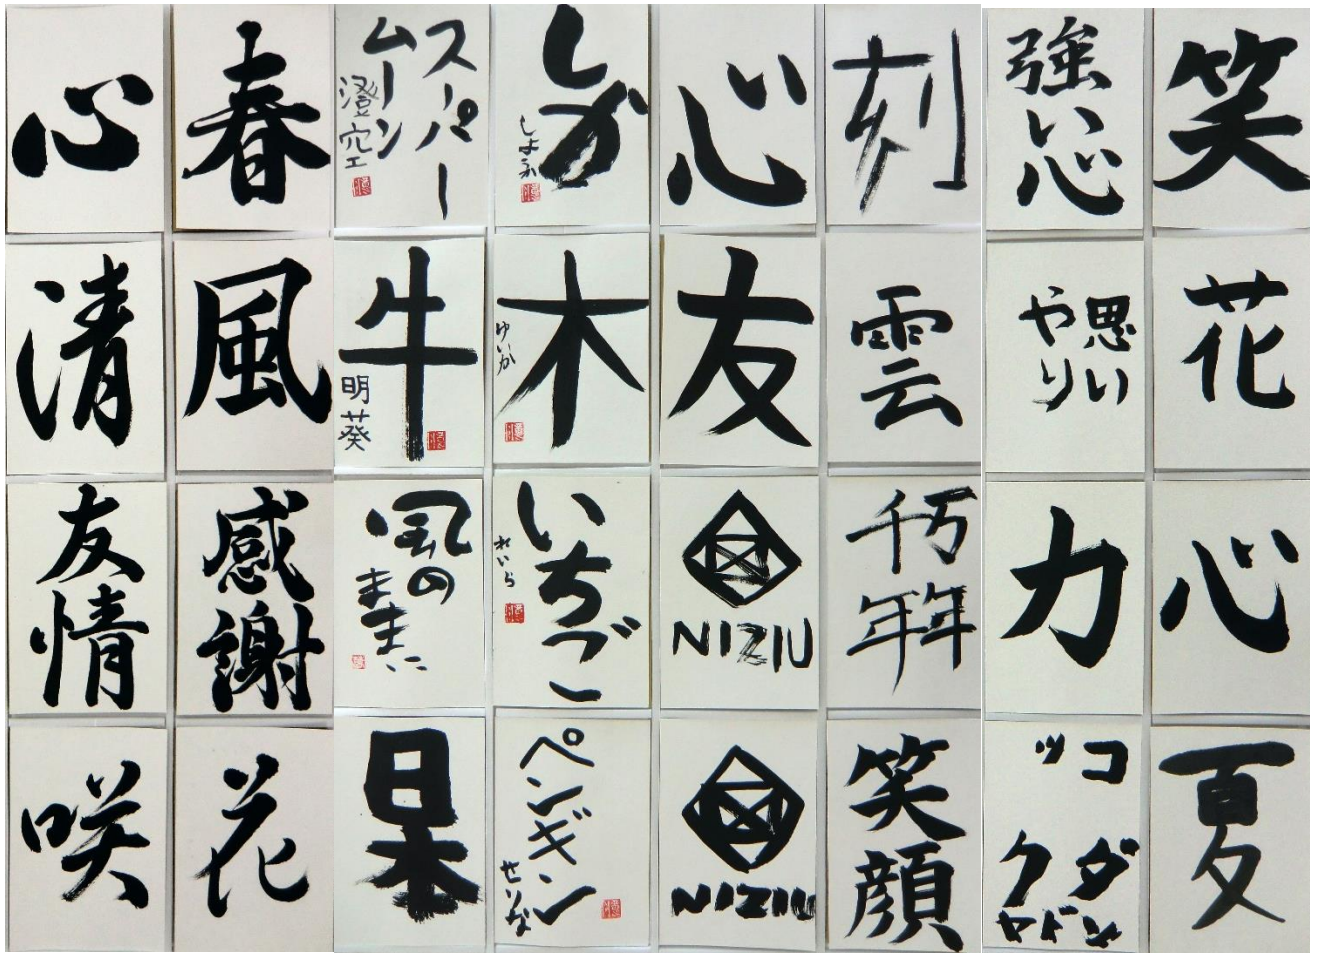 心
春
スーパー
ムーン
澄空
しか
しょふ
心
刻
強い心
笑
清
風
牛
明葵
木
ゆいか
友
雲
思い
やり
花
友情
感謝
風の
ままに
いちご
れいら
NIZIU
千万
年年
力
心
咲
花
日本
ペンギン
せりな
NIZIU
笑顔
コダ
ック
ヤドン
夏